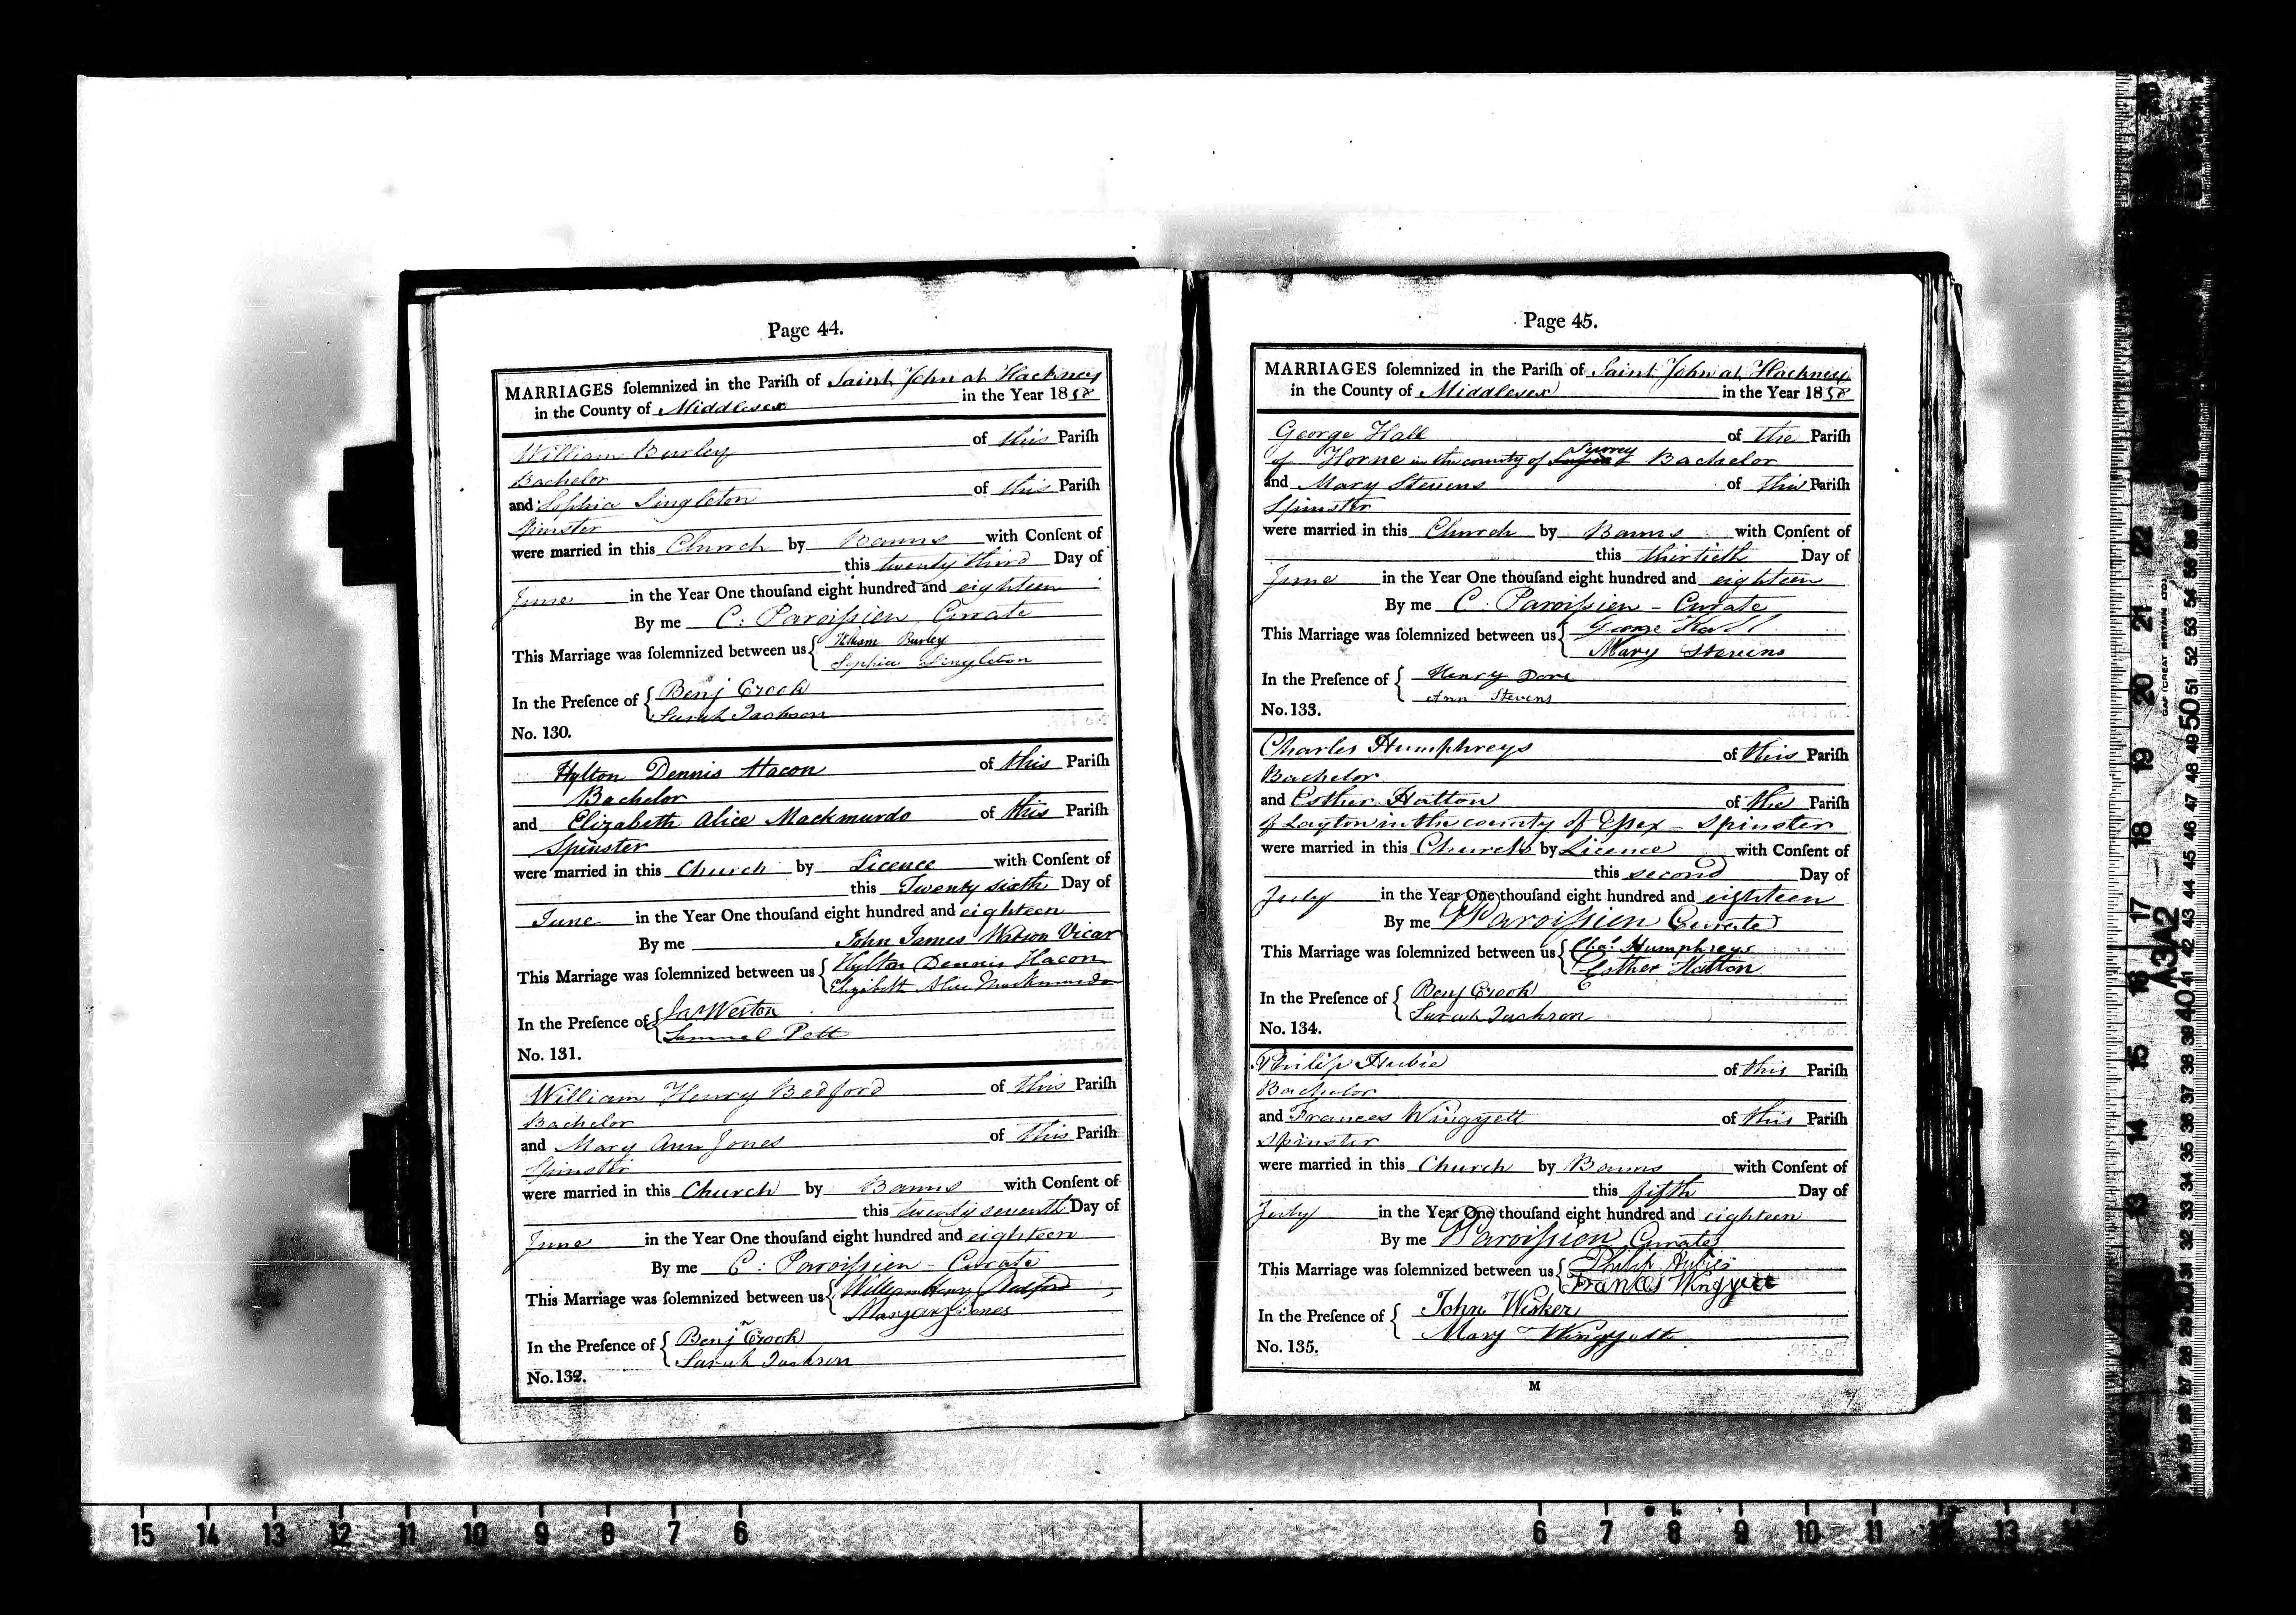 Page 44.
MARRIAGES ſolemnized in the Pariſh of Saint John at Hackney
in the County of Middlesex in the Year 1818
William Burley of this Pariſh
Bachelor
and Sophia Singleton of this Pariſh
Spinster
were married in this Church by Banns with Conſent of
this twenty third Day of
June in the Year One thouſand eight hundred and eighteen
By me C: Paroiſsien Curate
This Marriage was ſolemnized between us { William Burley
Sophia Singleton
In the Preſence of { Benj Crook
Sarah Jackson
No. 130.
Hylton Dennis Hacon of this Pariſh
Bachelor
and Elizabeth Alice Mackmurdo of this Pariſh
Spinster
were married in this Church by Licence with Conſent of
this Twenty sixth Day of
June in the Year One thouſand eight hundred and eighteen
By me John James Watson Vicar
This Marriage was ſolemnized between us { Hylton Dennis Hacon
Elizabeth Alice Mackmurdo
In the Preſence of { Jas Weston
Samuel Pett
No. 131.
William Henry Bedford of this Pariſh
Bachelor
and Mary Ann Jones of this Pariſh
Spinster
were married in this Church by Banns with Conſent of
this twenty seventh Day of
June in the Year One thouſand eight hundred and eighteen
By me C: Paroiſsien - Curate
This Marriage was ſolemnized between us { William Henry Bedford
Mary Jones
In the Preſence of { Benjn Crook
Sarah Jackson
No. 132.
Page 45.
MARRIAGES ſolemnized in the Pariſh of Saint John at Hackney
in the County of Middlesex in the Year 1818
George Hall of the Pariſh
of Horne in the county of Surrey Bachelor
and Mary Stevens of this Pariſh
Spinster
were married in this Church by Banns with Conſent of
this thirtieth Day of
June in the Year One thouſand eight hundred and eighteen
By me C: Paroiſsien - Curate
This Marriage was ſolemnized between us { George Hall
Mary Stevens
In the Preſence of { Henry Dove
Ann Stevens
No. 133.
Charles Humphreys of this Pariſh
Bachelor
and Esther Hatton of the Pariſh
of Layton in the county of Eſsex - Spinster
were married in this Church by Licence with Conſent of
this second Day of
July in the Year One thouſand eight hundred and eighteen
By me Paroiſsien Curate
This Marriage was ſolemnized between us { Chas. Humphreys
Esther Hatton
In the Preſence of { Benj Crook
Sarah Jackson
No. 134.
Philip Hubie of this Pariſh
Bachelor
and Frances Wingyett of this Pariſh
Spinster
were married in this Church by Banns with Conſent of
this fifth Day of
July in the Year One thouſand eight hundred and eighteen
By me Paroiſsien Curate
This Marriage was ſolemnized between us { Philip
Frances Wingyett
In the Preſence of { John Wisker
Mary Wingyett
No. 135.
M